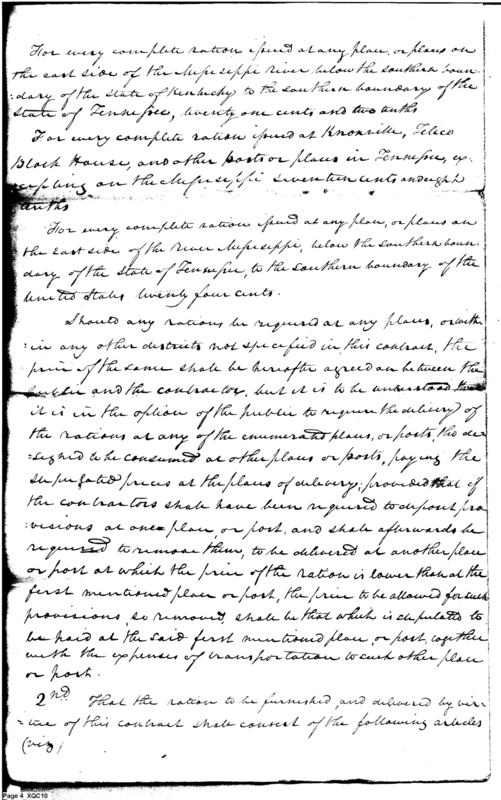 For every complete ration issued at any place, or places on
the east side of the Mississippi river below the southern boun-
:dary of the state of Kentucky to the southern boundary of the
State of Tennessee, twenty one cents and two tenths
For every complete ration issued at Knoxville, Telico
Block House, and other posts or places in Tennessee, ex-
:cepting on the Mississippi seventeen cents and eight
tenths
For every complete ration issued at any place, or places on
the East side of the river Mississippi, below the southern boun-
dary of the state of Tennessee, to the southern boundary of the
United States twenty four cents.
Should any rations be required at any places, or with-
:in any other districts not specified in this contract, the
price of the same shall be hereafter agreed on between the
public and the contractor, but it is to be understood that
it is in the option of the public to require the delivery of
the rations at any of the enumerated places, or posts, tho de-
:signed to be consumed at other places or posts, paying the
stipulated prices at the places of delivery; provided that if
the contractors shall have been required to deposit pro
:visions at one place or post, and shall afterwards be
required to remove them, to be delivered at another place
or post at which the price of the ration is lower than at the
first mentioned place or post, the price to be allowed for such
provisions, so removed, shall be that which is stipulated to
be paid at the said first mentioned place, or post, together
with the expenses of transportation to such other place
or post.
2nd. That the ration to be furnished, and delivered by vir-
:tue of this contract shall consist of the following articles
(viz)
Page 4 XQC10